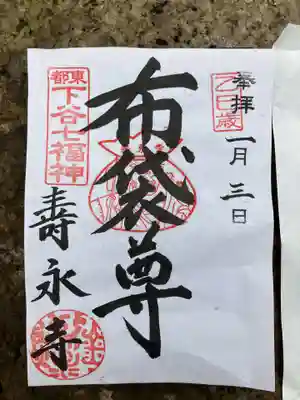 奉拝
乙巳歳
一月三日
布袋尊
東都
下谷七福神
壽永寺